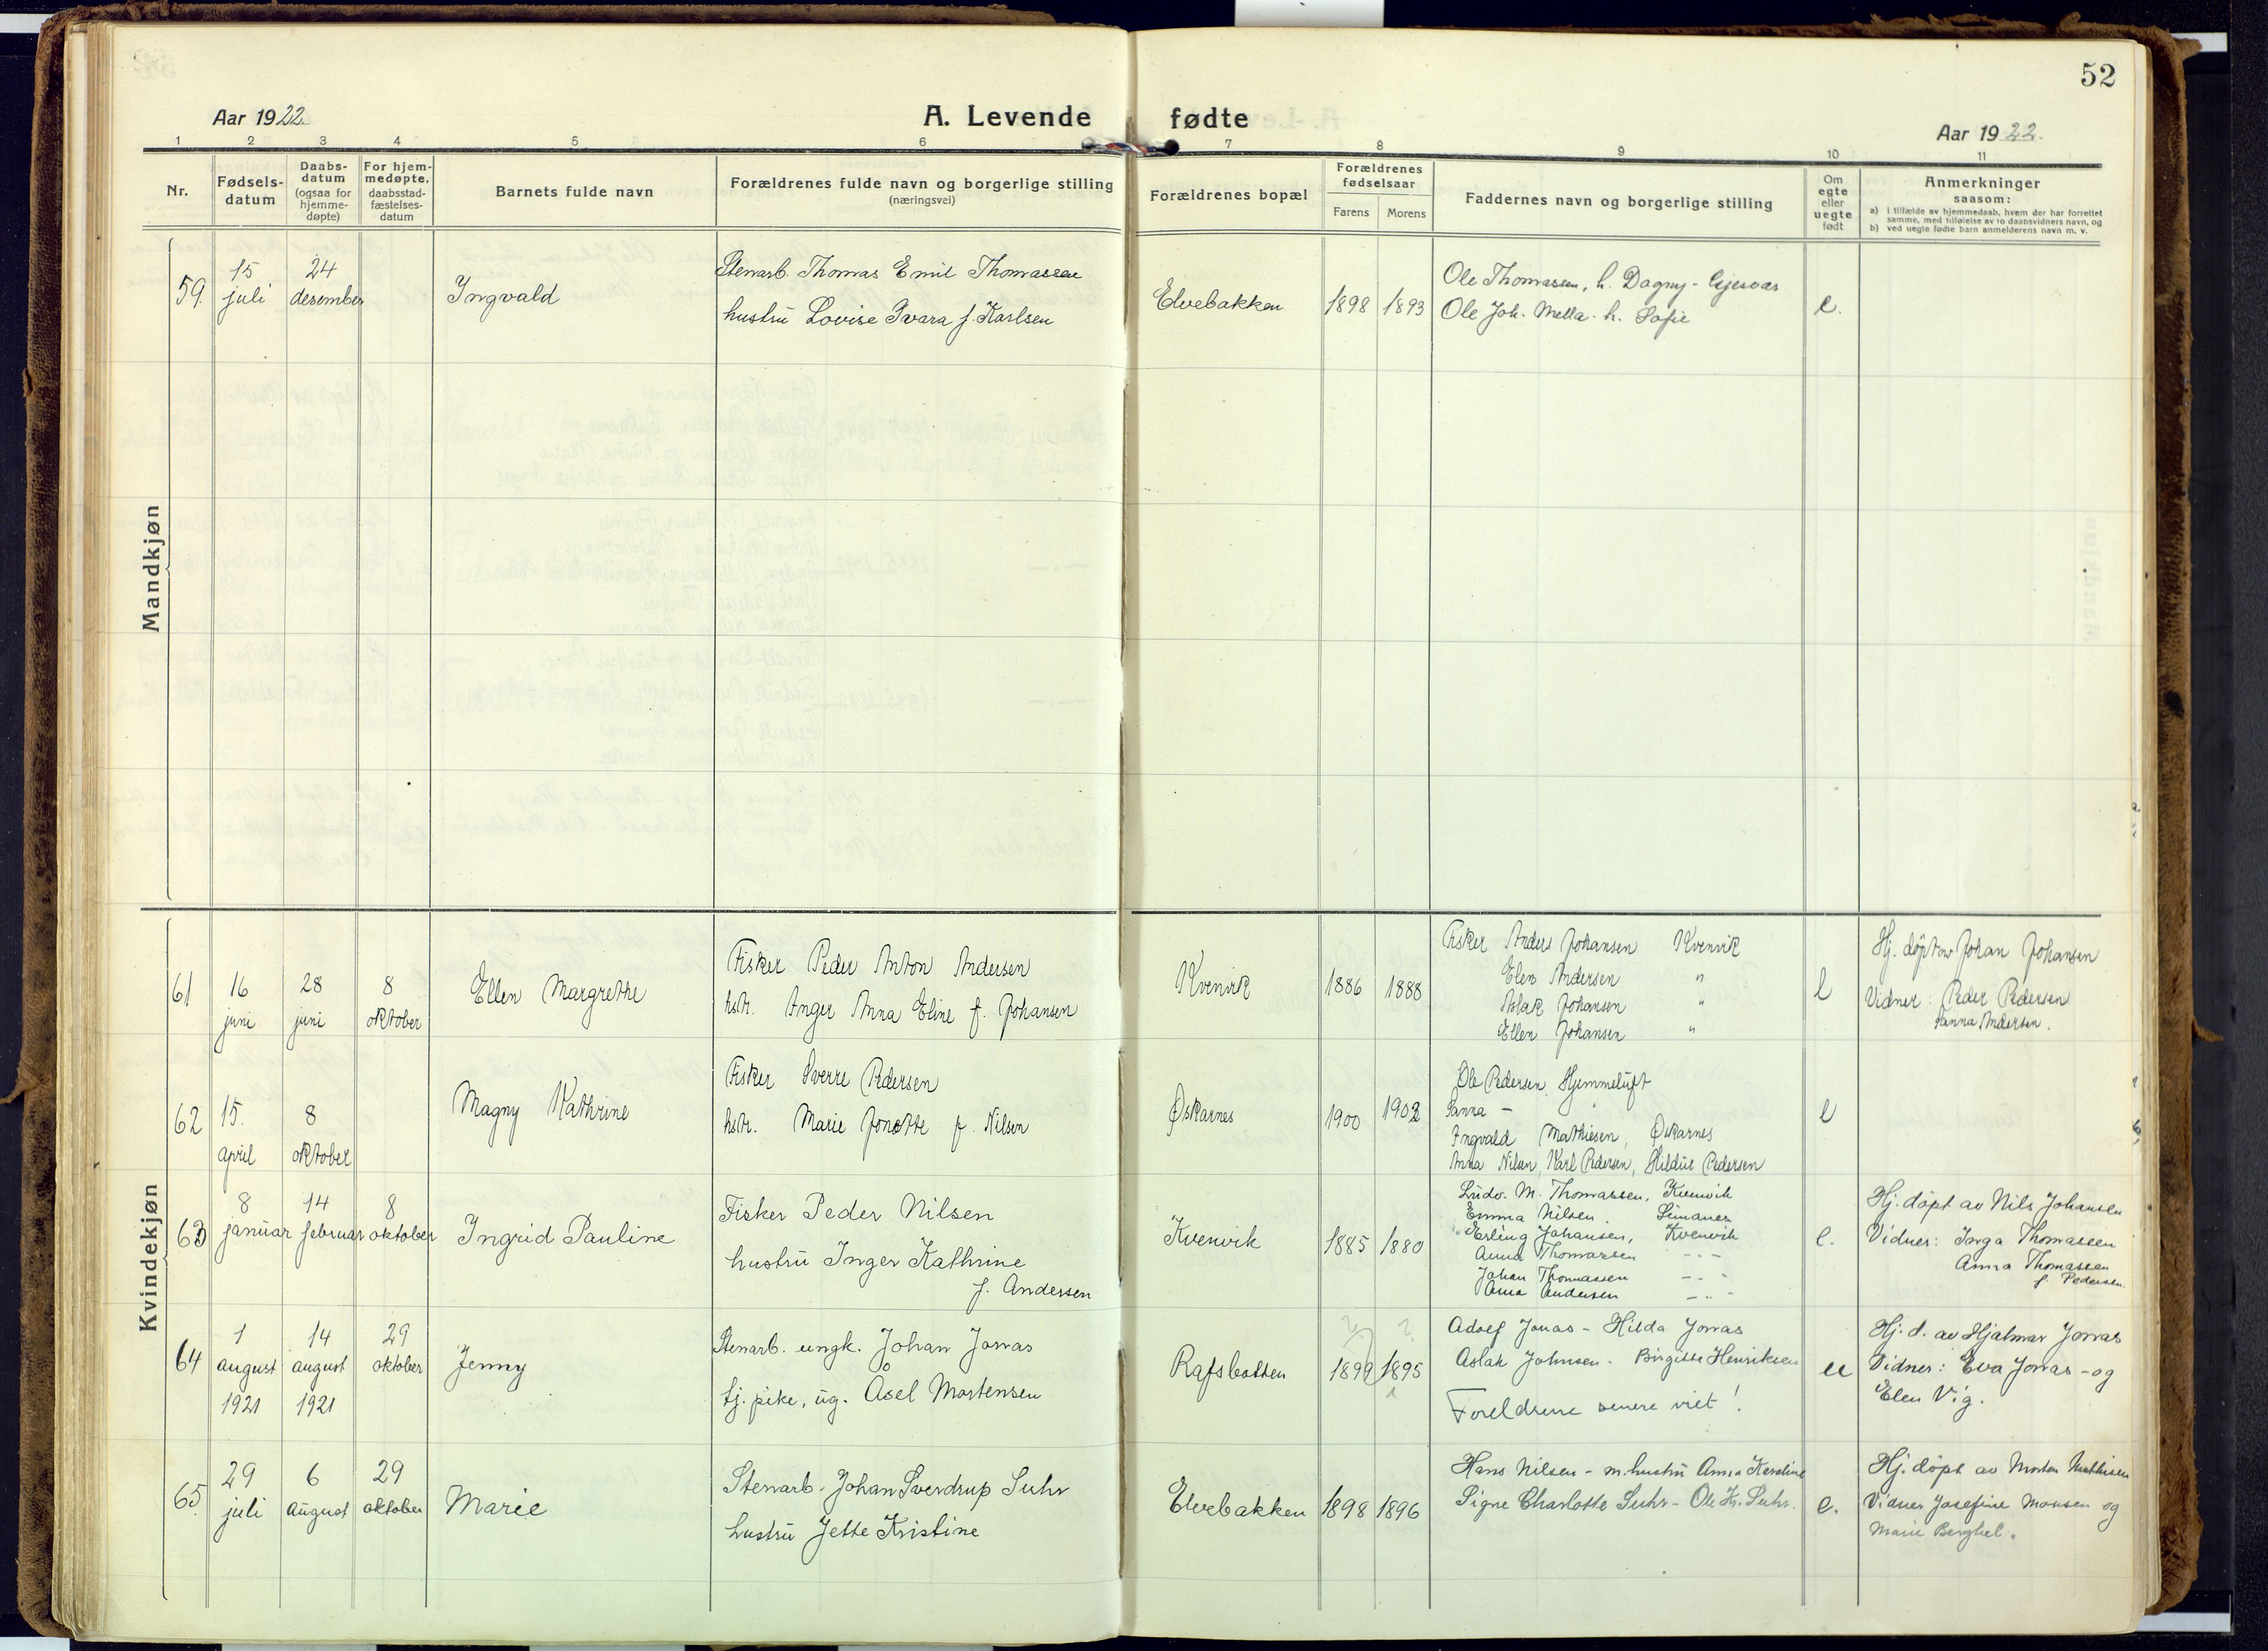 52
Aar 1922.
A. Levende fødte
Aar 1922.
1 2 3 4 5 6 7 8 9 10 11
Nr.
Fødsels-
datum
Daabs-
datum
(ogsaa for
hjemme-
døpte)
For hjem-
medøpte,
daabsstad-
fæstelses-
datum
Barnets fulde navn
Forældrenes fulde navn og borgerlige stilling
(næringsvei)
Forældrenes bopæl
Forældrenes
fødselsaar
Farens Morens
Faddernes navn og borgerlige stilling
Om
egte
eller
uegte
født
Anmerkninger
saasom:
a) i tilfælde av hjemmedaab, hvem der har forrettet
samme, med tilføielse av to daabsvidners navn, og
b) ved uegte fødte barn anmelderens navn m. v.
Mandkjøn
59.
15
juli
24
desember
Ingvald
Stenarb. Thomas Emil Thomassen
hustru Lovise Ivara f. Karlsen
Elvebakken
1898 1893
Ole Thomassen, h. Dagny - Gjesvær
Ole Joh. Mella - h. Sofie
e.
Kvindekjøn
61
16
juni
28
juni
8
oktober
Ellen Margrethe
Fisker Peder Anton Andersen
hstr. Inger Anna Eline f. Johansen
Kvenvik
1886 1888
Fisker Anders Johansen Kvenvik
Elen Andersen "
Aslak Johansen "
Ellen Johansen "
e
Hj. døpt av Johan Johansen
Vidner: Peder Pedersen
Sanna Andersen.
62
15.
april
8
oktober
Magny Kathrine
Fisker Sverre Pedersen
hstr. Marie Jonette f. Nilsen
Øskarnes
1900 1902
Ole Pedersen Hjemmeluft
Sanna - "
Ingvald Mathisen, Øskarnes
Anna Nilsen, Karl Pedersen, Hildur Pedersen
e
63
8
januar
14
februar
8
oktober
Ingrid Pauline
Fisker Peder Nilsen
hustru Inger Kathrine
f. Andersen
Kvenvik
1885 1880
Ludv. M. Thomassen, Kvenvik
Emma Nilsen. Simanes
Erling Johansen, Kvenvik
Anna Thomassen - " -
Johan Thomassen - " -
Anna Andersen - " -
e.
Hj. døpt av Nils Johansen
Vidner: Inga Thomassen
Anna Thomassen
f. Pedersen.
64
1
august
1921
14
august
1921
29
oktober
Jenny
Stenarb. ungk. Johan Jonas
tj. pike, ug. Åsel Mortensen
Rafsbotten
? ?
1899 1895
Adolf Jonas - Hilda Jonas
Aslak Johnsen - Birgitte Henriksen
Foreldrene senere viet!
u
Hj. d. av Hjalmar Jonas
Vidner: Eva Jonas - og
Elen Vig.
65.
29
juli
6
August
29
oktober
Marie
Stenarb. Johan Sverdrup Suhr
hustru Jette Kristine
Elvebakken
1898 1896
Hans Nilsen - m. hustru Anna Karoline
Signe Charlotte Suhr - Ole Kr. Suhr.
e.
Hj. døpt av Morten Mathisen
Vidner Josefine Monsen og
Marie Berghel.